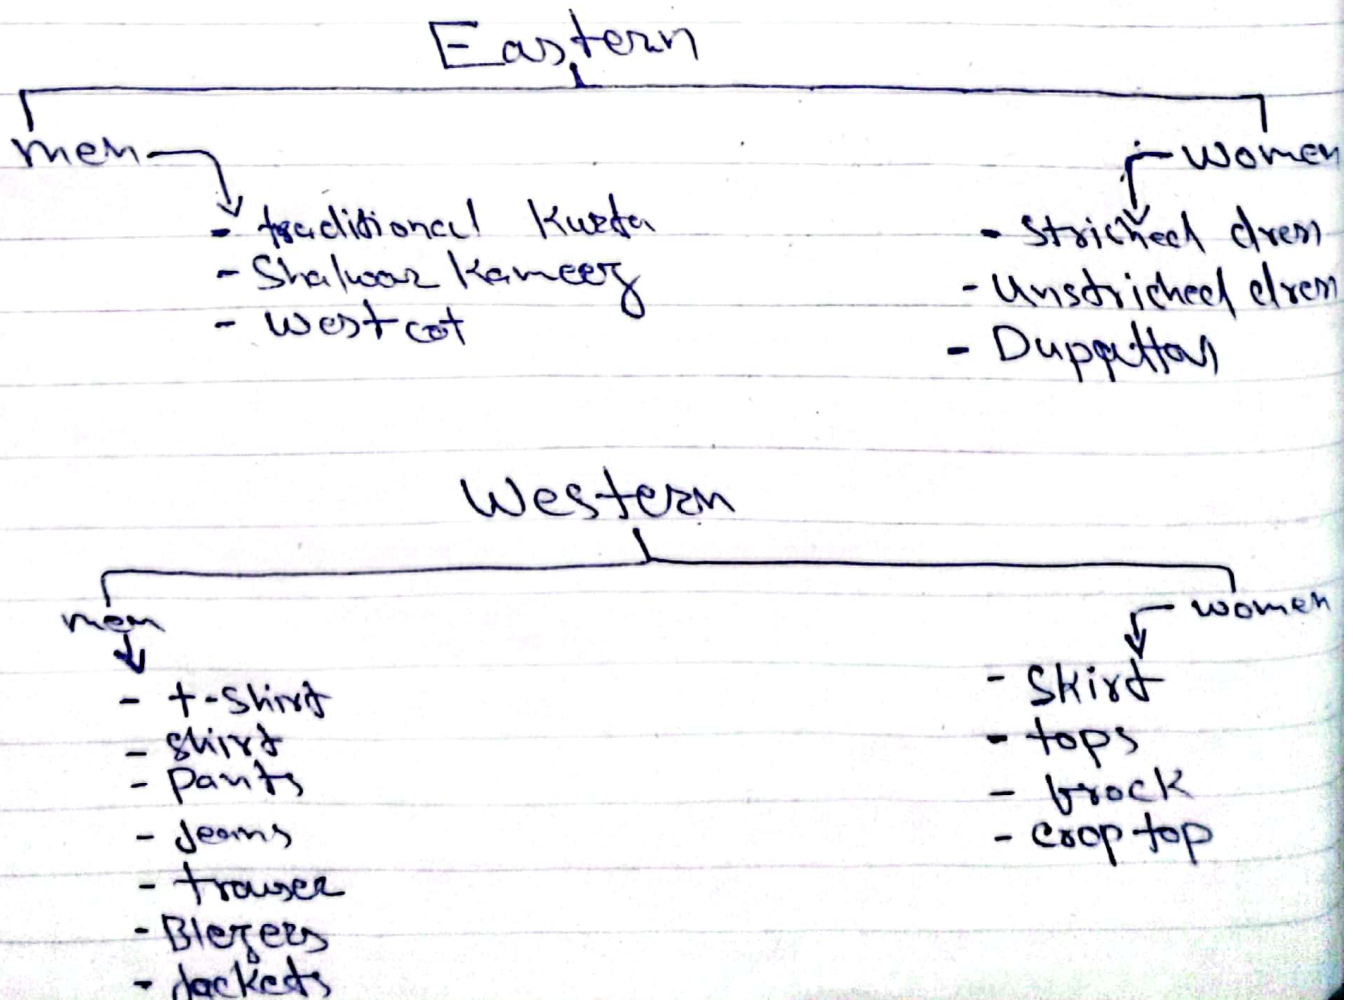 Eastern
men
women
- traditional Kurta
- Shalwar Kameez
- westcot
- Striched dress
- Unstriched dress
- Dupattas
Western
men
women
- t-Shirt
- shirt
- Pants
- Jeans
- trouser
- Blezers
- Jackets
- Skirt
- tops
- frock
- crop top